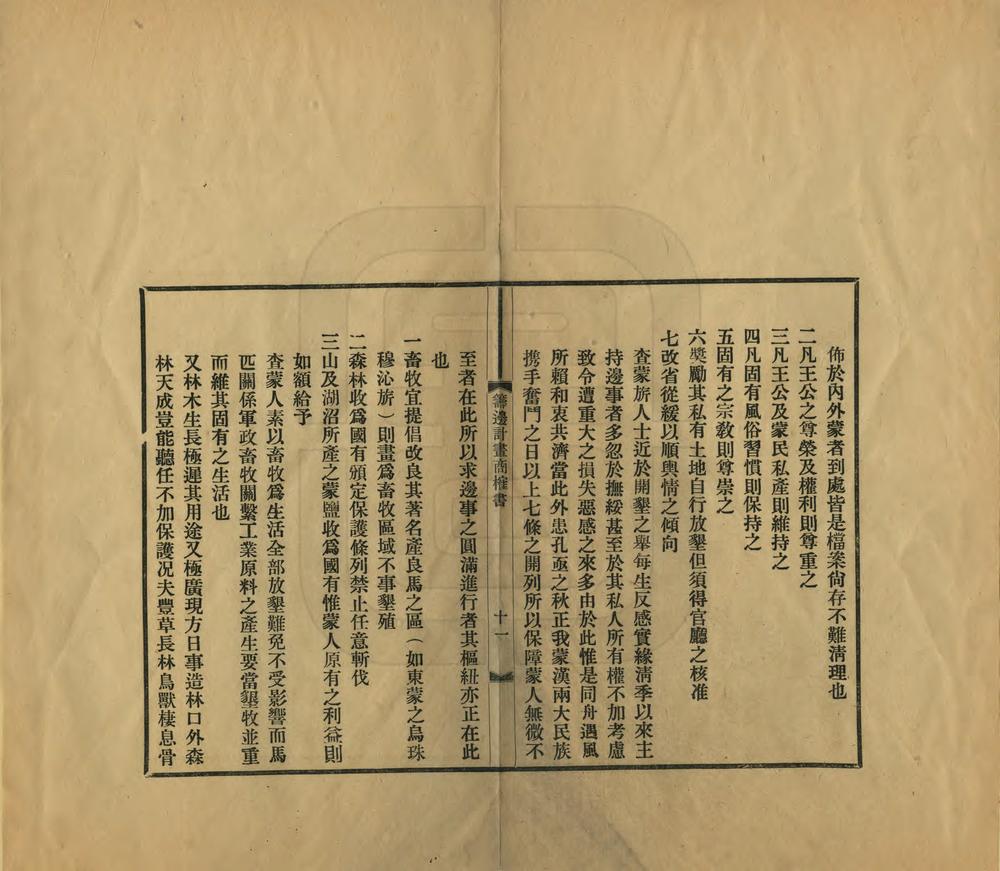 佈於內外蒙者到處皆是檔案尙存不難清理也
二凡王公之尊榮及權利則尊重之
三凡王公及蒙民私產則維持之
四凡固有風俗習慣則保持之
五固有之宗敎則尊崇之
六獎勵其私有土地自行放墾但須得官廳之核准
七改省從緩以順輿情之傾向
查蒙旂人士近於開墾之舉每生反感實緣淸季以來主
持邊事者多忽於撫綏甚至於其私人所有權不加考慮
致令遭重大之損失惡感之來多由於此惟是同舟遇風
所賴和衷共濟當此外患孔亟之秋正我蒙漢兩大民族
携手奮鬥之日以上七條之開列所以保障蒙人無微不
籌邊計畫商榷書
十一
至者在此所以求邊事之圓滿進行者其樞紐亦正在此
也
一畜牧宜提倡改良其著名產良馬之區（如東蒙之烏珠
穆沁旂）則畫爲畜牧區域不事墾殖
二森林收爲國有頒定保護條列禁止任意斬伐
三山及湖沼所產之蒙鹽收爲國有惟蒙人原有之利益則
如額給予
查蒙人素以畜牧爲生活全部放墾難免不受影響而馬
匹關係軍政畜牧關繫工業原料之產生要當墾牧並重
而維其固有之生活也
又林木生長極遲其用途又極廣現方日事造林口外森
林天成豈能聽任不加保護況夫豐草長林鳥獸棲息骨